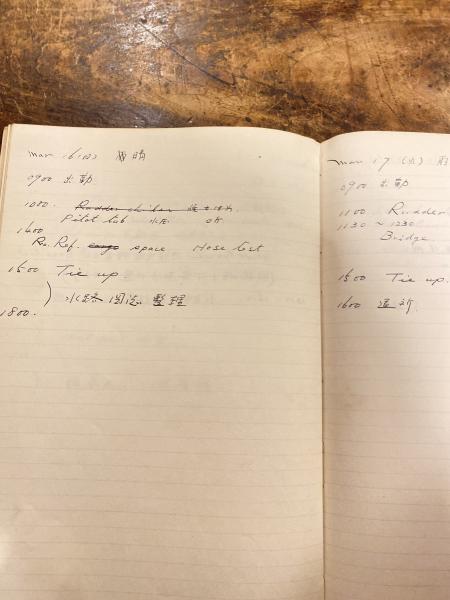 Mar 16 (月) 晴
0900 出勤
1000. Rudder
Pitot tub 水圧 OK
1400
Ra. Ref. cargo space Hose test
1500 Tie up.
) 水路 図誌 整理
1800.
Mar 17 (火)
0900 出勤
1100 Rudder
1130 ~ 1230
Bridge
1500 Tie up.
1600